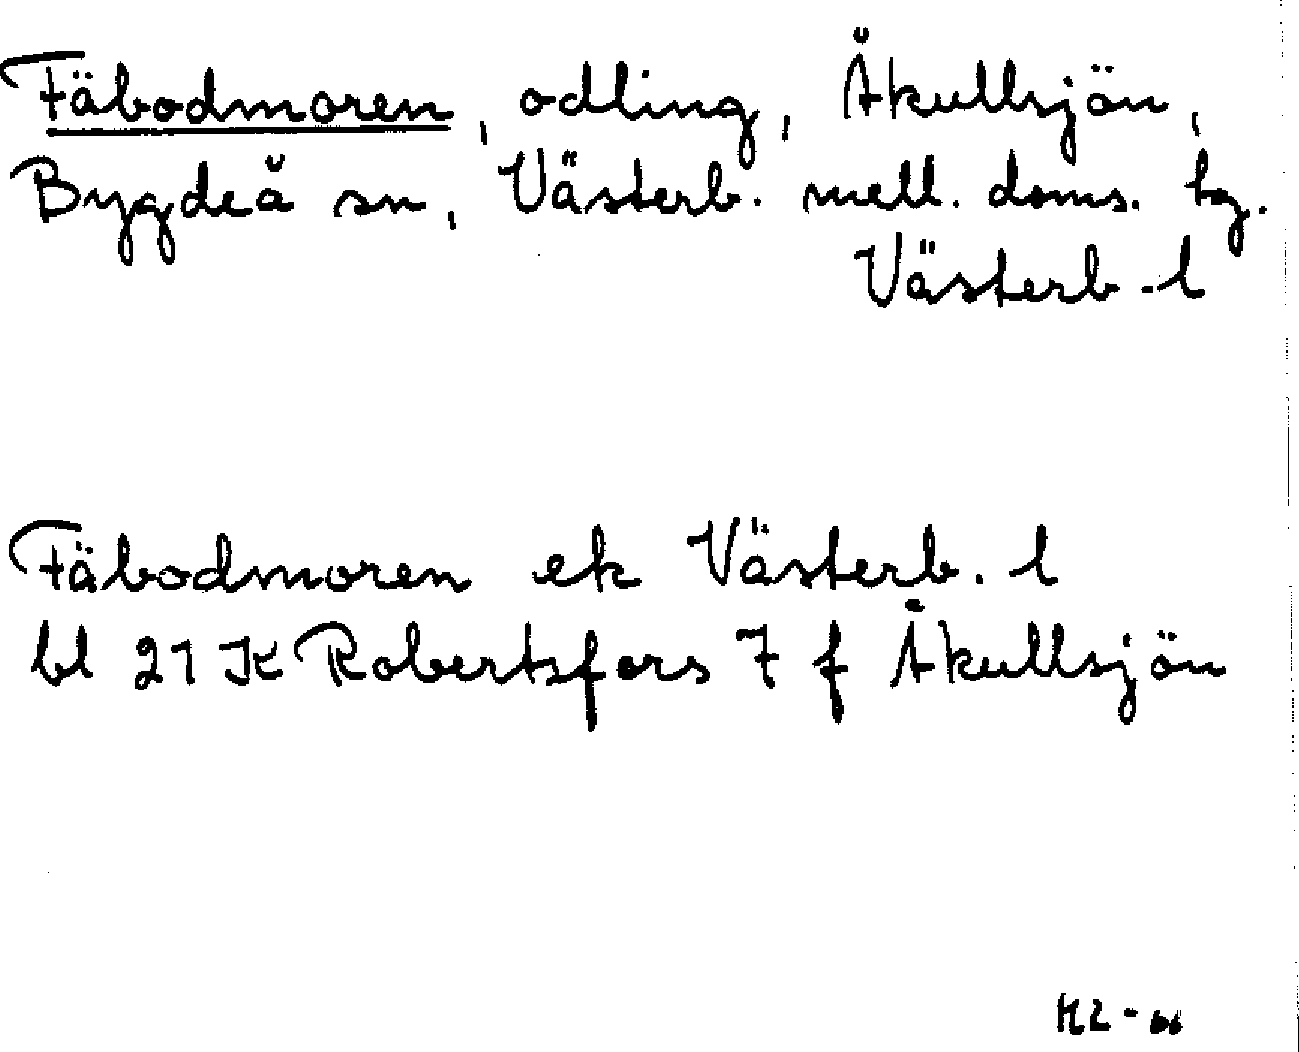 Fäbodmoren, odling, Åkullsjön,
Bygdeå sn, Västerb. mell. doms. tg.
Västerb. l
Fäbodmoren ek Västerb. l
bl 21 K Robertsfors 7 f Åkullsjön